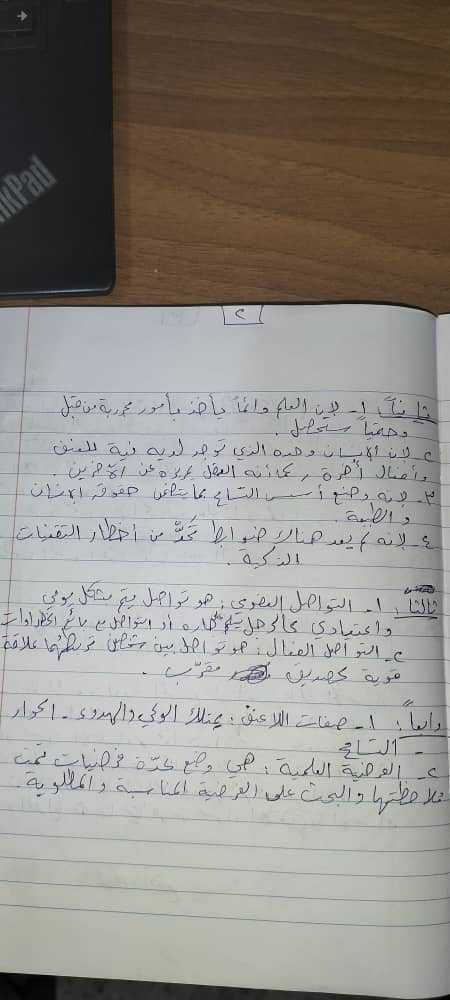 nkPad
٢
ثانياً: ١- لان العلم دائماً يأخذ بأمور مجربة من قبل
وحتمياً ستحصل.
٢- لان الانسان وحده الذي توجد لديه نية للعنف
وأفعال أخرى، كما أنه العقل يميزه عن الآخرين.
٣- لانه وضع أسس التسامح بما يتضمن حقوق الإنسان
والطبيعة.
٤- لانه لم يعد هناك ضوابط تَحُدُّ من أخطار التقنيات
الذكية.
ثالثاً: ١- التواصل العضوي: هو تواصل يتم بشكل يومي
واعتيادي كالرجل جاره أو التواصل مع بائع الخضراوات
٢- التواصل الفعال: هو تواصل بين شخصين تربطهما علاقة
قوية كصديق مقرّب.
رابعاً: ١- صفات اللاعنف: يمتلك الوعي والهدوء - الحوار
- التسامح
٢- الفرضية العلمية: هي وضع عدّة فرضيات تمت
ملاحظتها والبحث على الفرضية المناسبة والمطلوبة.